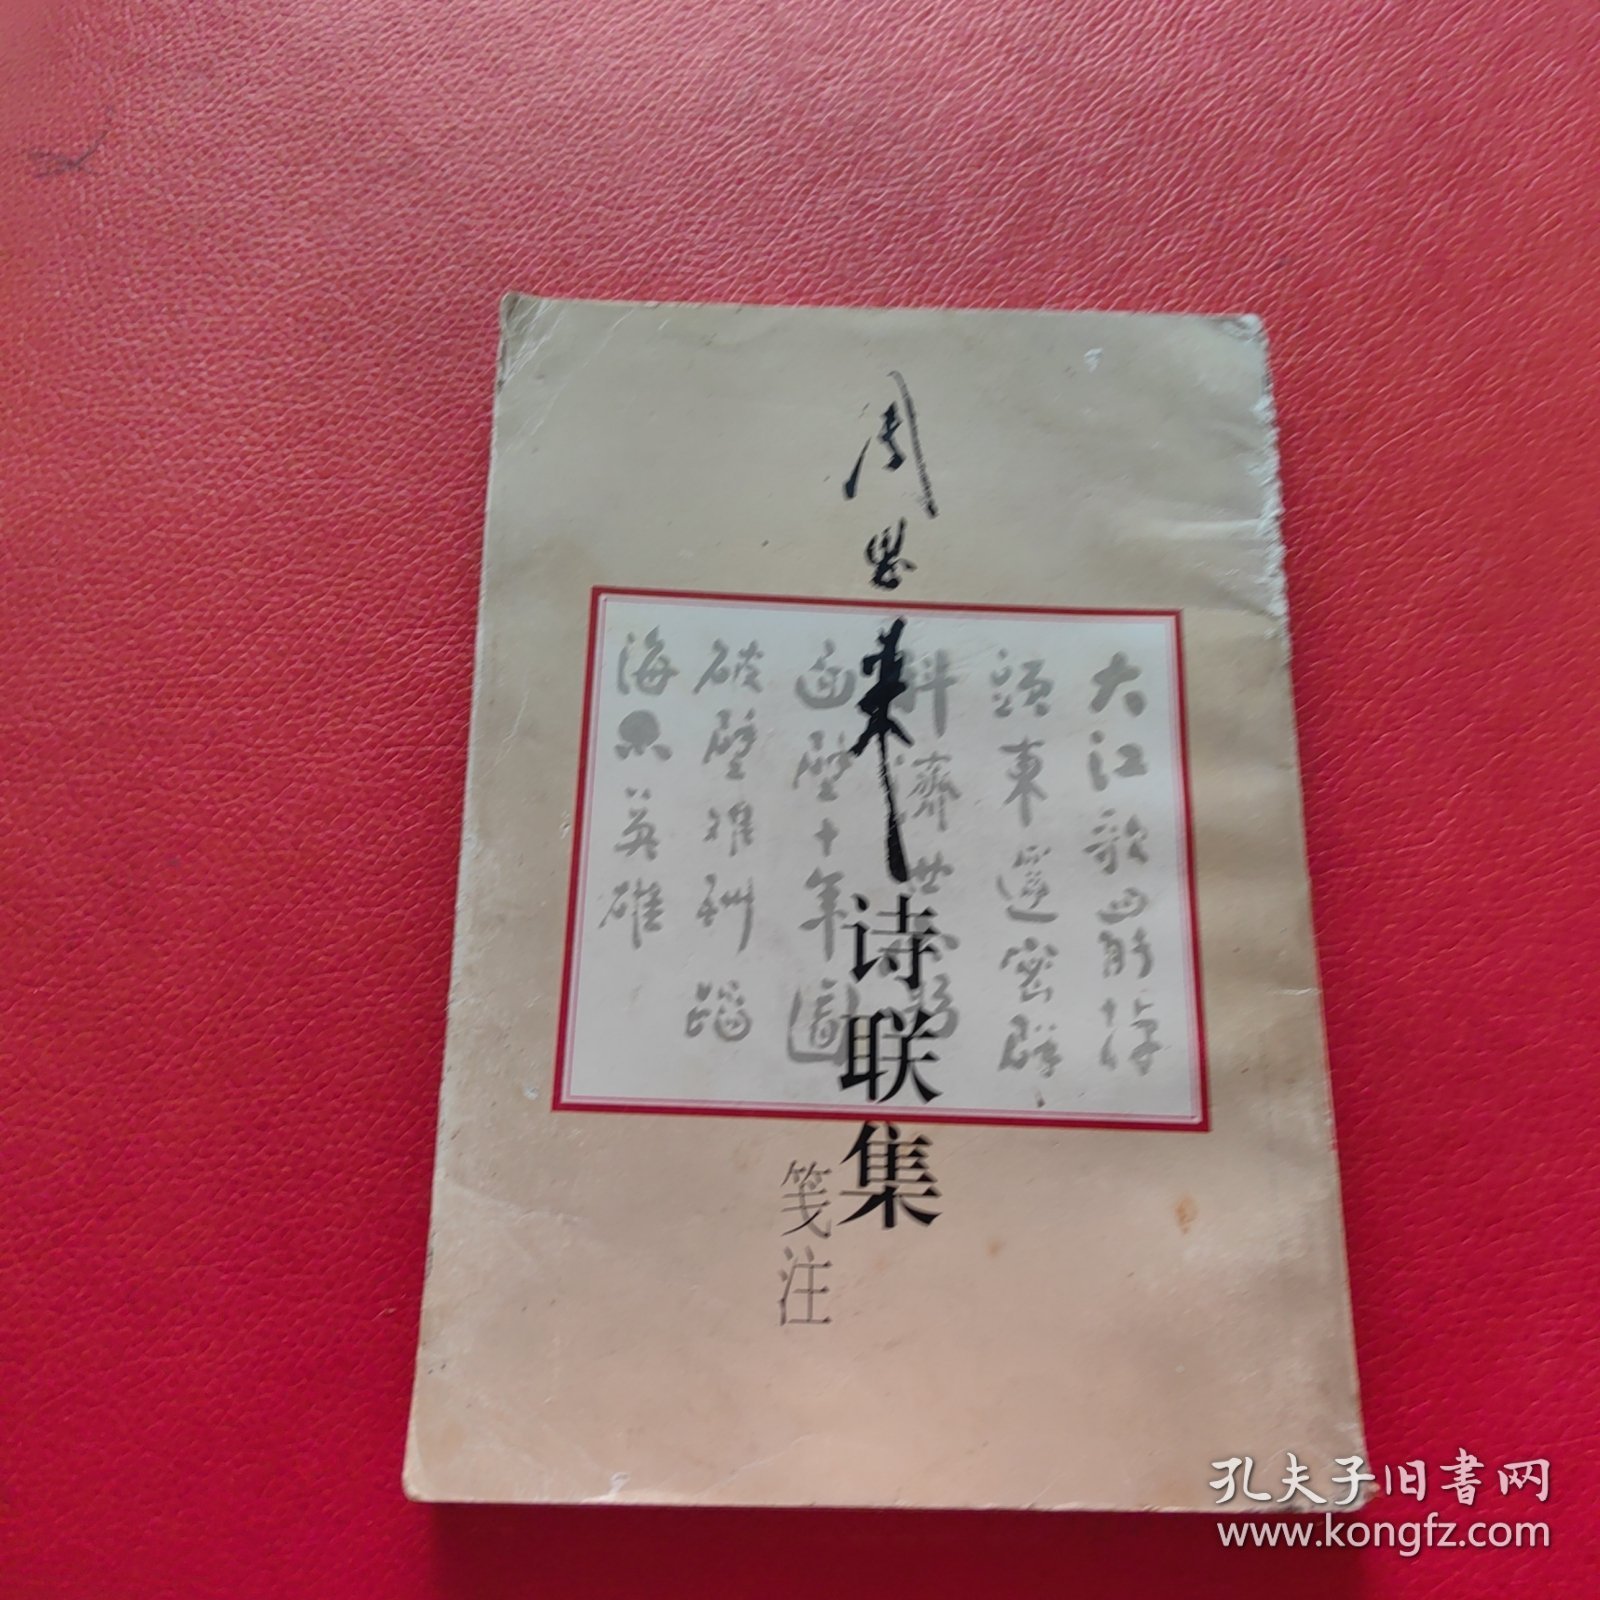 周恩来诗联集
笺注
大江歌罷掉
頭東邃密群
科濟世窮
面壁十年圖
破壁難酬蹈
海亦英雄
孔夫子旧书网
www.kongfz.com